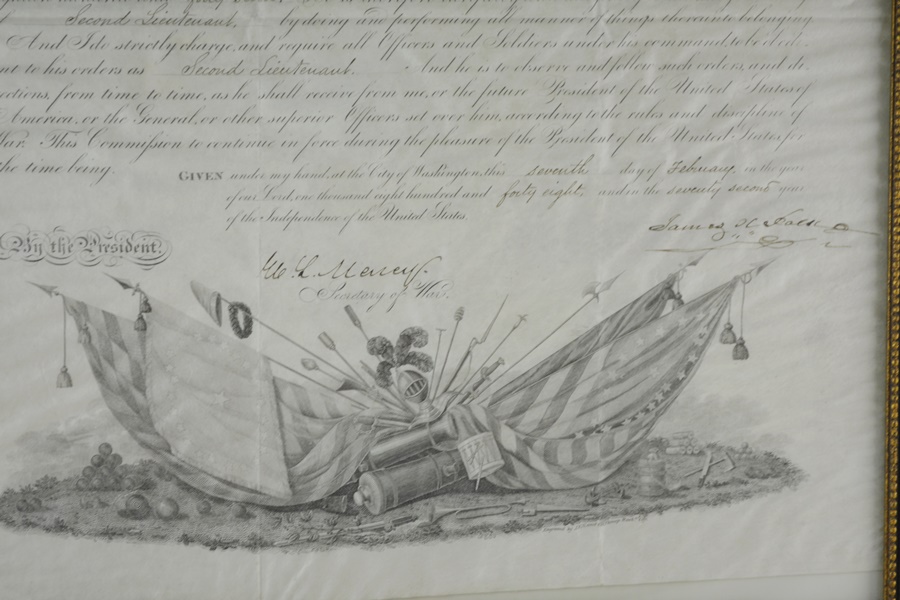 Second Lieutenant, by doing and performing all manner of things thereunto belonging
And I do strictly charge, and require all Officers and Soldiers under his command, to be obedi-
ent to his orders as Second Lieutenant. And he is to observe and follow such orders, and di-
ections, from time to time, as he shall receive from me, or the future President of the United States of
America, or the General, or other superior Officers set over him, according to the rules and discipline of
War. This Commission to continue in force during the pleasure of the President of the United States, for
the time being.
GIVEN under my hand, at the City of Washington, this seventh day of February, in the year
of our Lord, one thousand eight hundred and forty eight, and in the seventy second year
of the Independence of the United States.
James K. Polk
By the President.
W. L. Marcy.
Secretary of War.